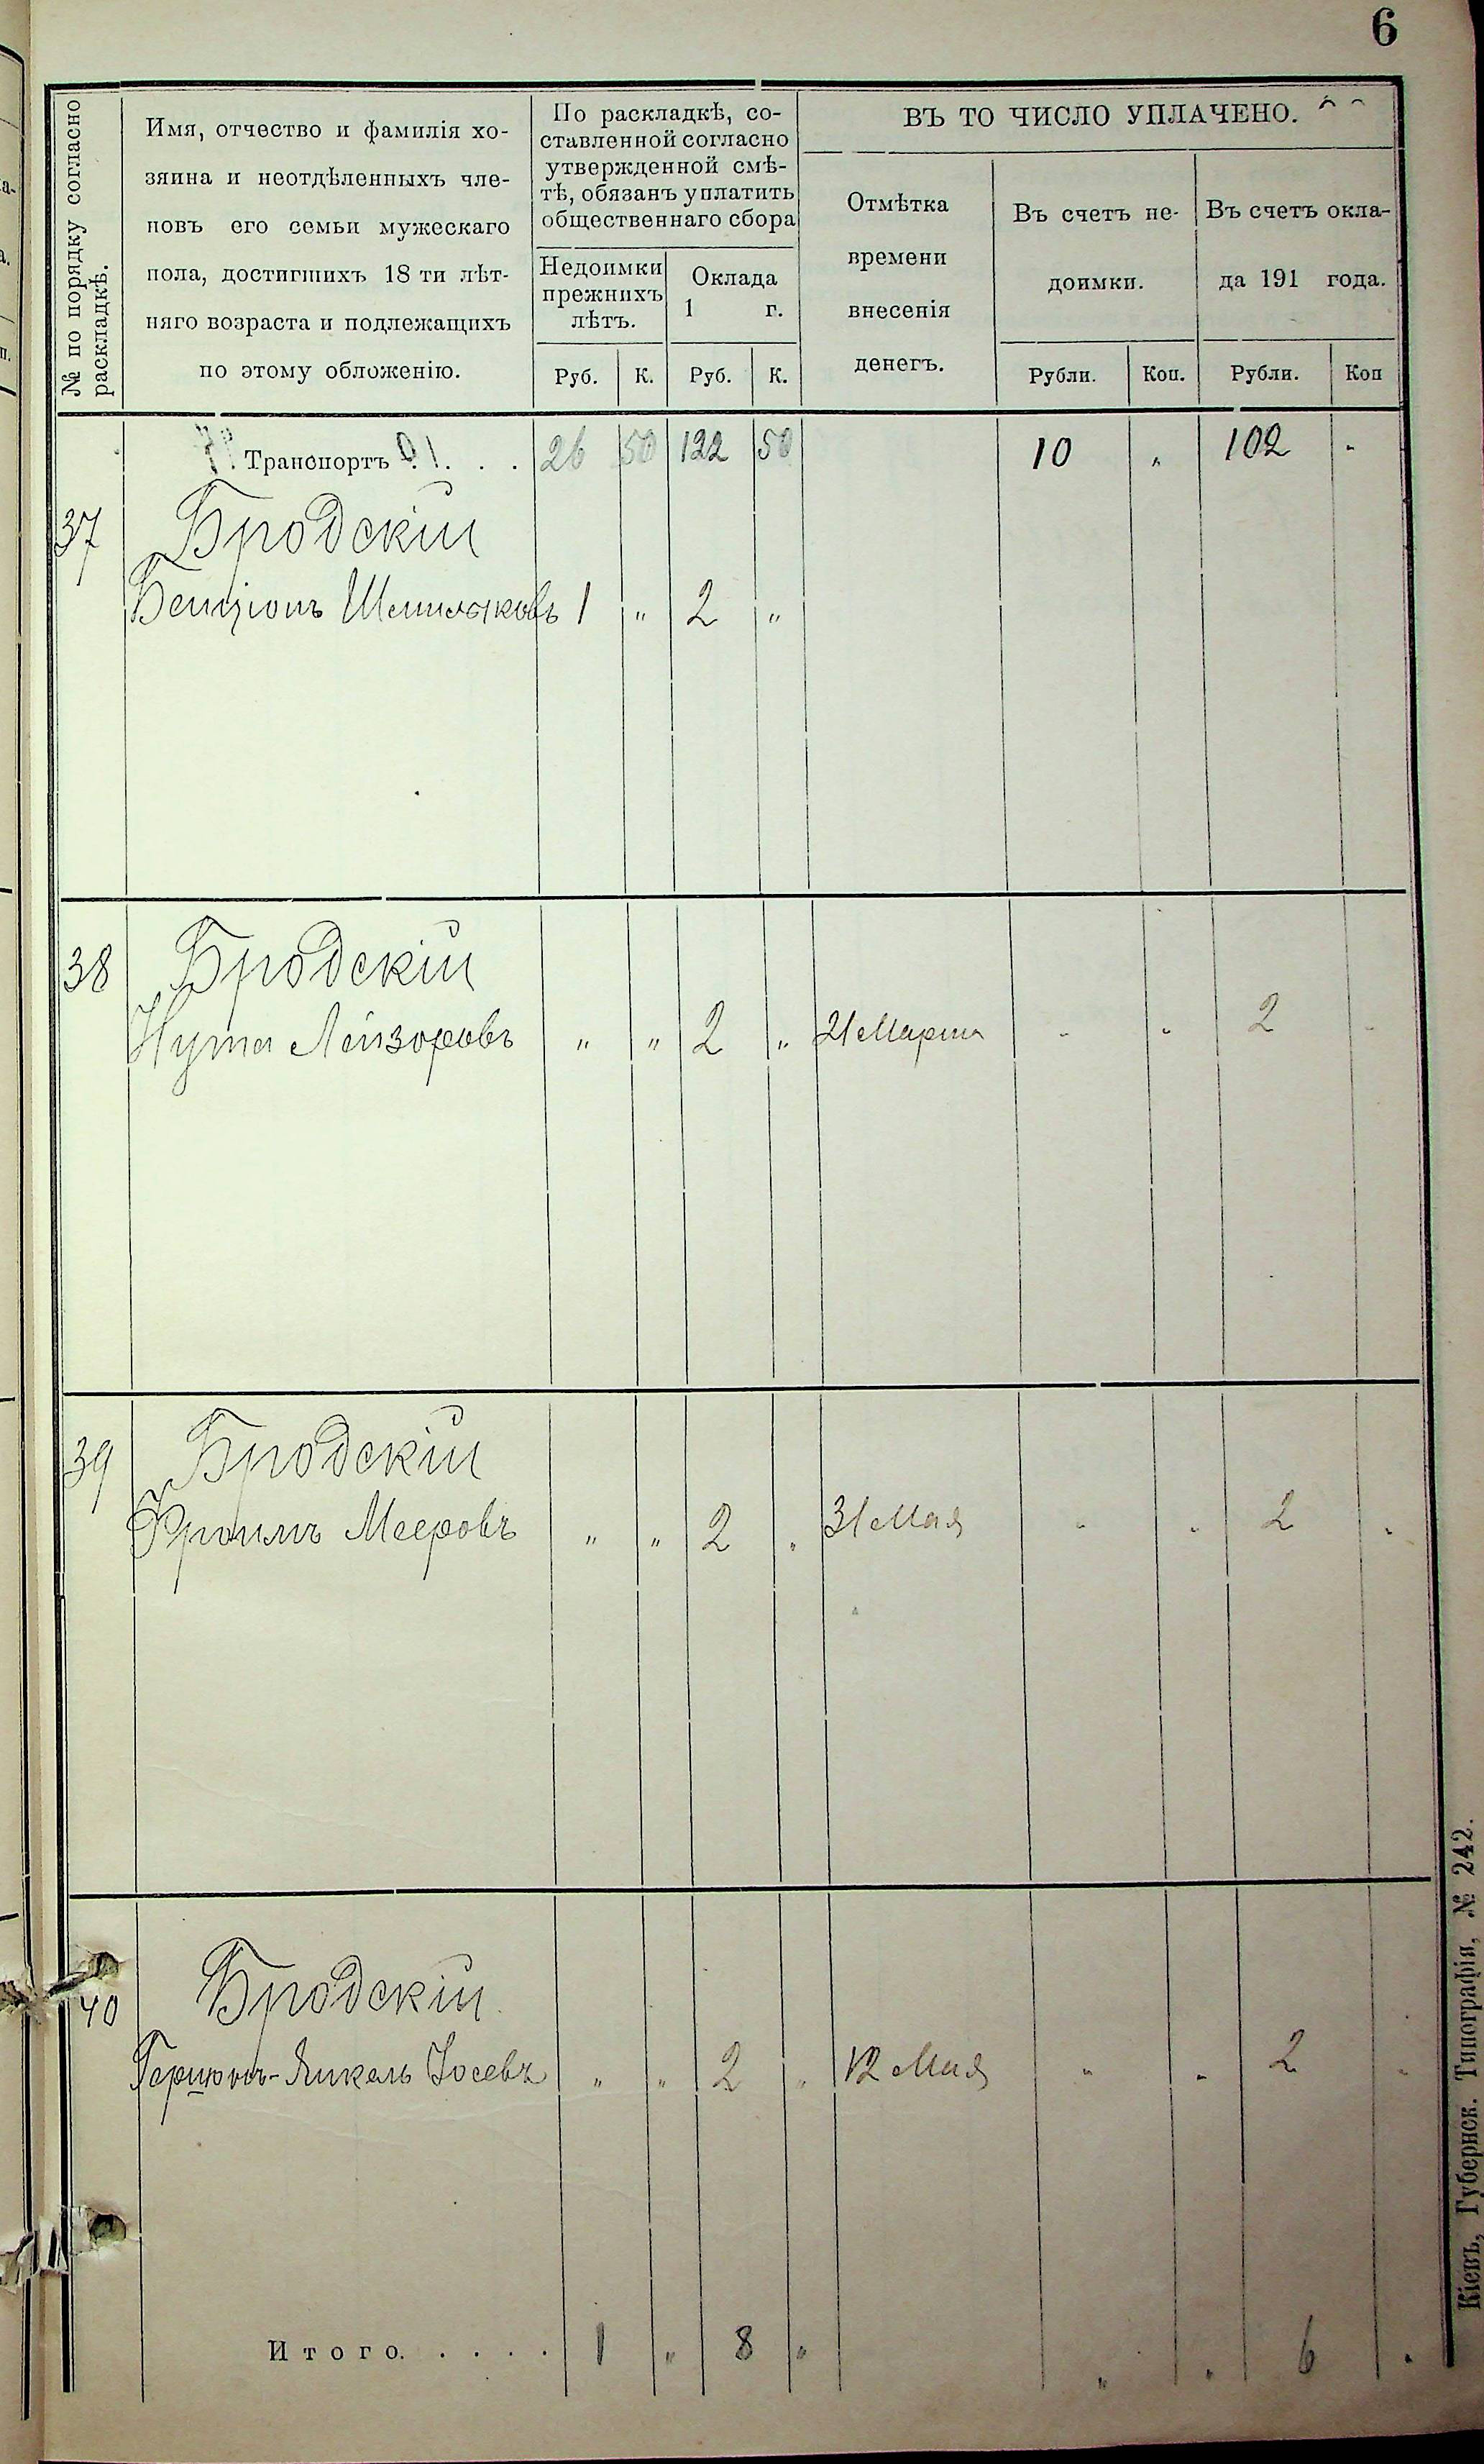 6
№ по порядку согласно
раскладкѣ.
Имя, отчество и фамилія хо-
зяина и неотдѣленныхъ чле-
новъ его семьи мужескаго
пола, достигшихъ 18 ти лѣт-
няго возраста и подлежащихъ
по этому обложенію.
По раскладкѣ, со-
ставленной согласно
утвержденной смѣ-
тѣ, обязанъ уплатить
общественнаго сбора
Недоимки
прежнихъ
лѣтъ.
Оклада
1 г.
Руб. К. Руб. К.
ВЪ ТО ЧИСЛО УПЛАЧЕНО.
Отмѣтка
времени
внесенія
денегъ.
Въ счетъ не-
доимки.
Въ счетъ окла-
да 191 года.
Рубли. Коп. Рубли. Коп
Транспортъ . . . 26 50 122 50 10 „ 102 -
37 Бродскій
Бенціонъ 1 „ 2 „
38 Бродскій
Нута Лейзоровъ „ „ 2 „ 21 Марта - - 2 -
39 Бродскій
Фроимъ Мееровъ „ „ 2 „ 31 Мая - - 2 -
40 Бродскій
Гершонъ-Янкель Іосевъ „ „ 2 „ 12 Мая - - 2 -
Итого. . . . . 1 „ 8 „ „ „ 6 .
Кіевъ, Губернск. Типографія, № 242.